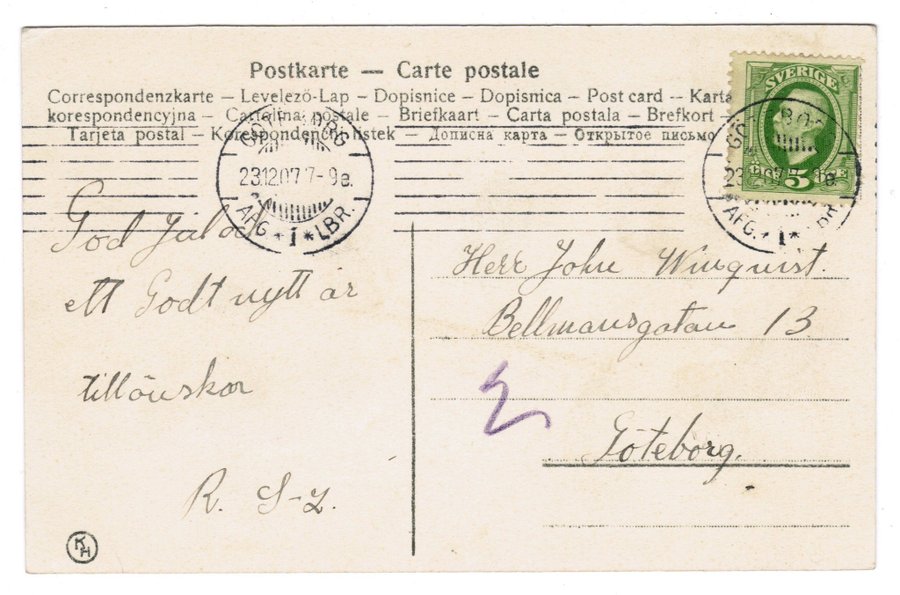 Postkarte — Carte postale
Correspondenzkarte – Levelező-Lap – Dopisnice – Dopisnica – Post card – Karta
korespondencyjna – Cartolina postale – Briefkaart – Carta postala – Brefkort –
Tarjeta postal – Korespondenční lístek – Дописна карта – Открытое письмо
SVERIGE
5
GÖTEBORG
23.12.07 7-9e.
AFG. * 1 * LBR.
23.12.07
AFG. * 1 *
God Jul &
ett Godt nytt år
tillönskar
R. S-z.
Herr John Winquist.
Bellmansgatan 13
Göteborg.
KH